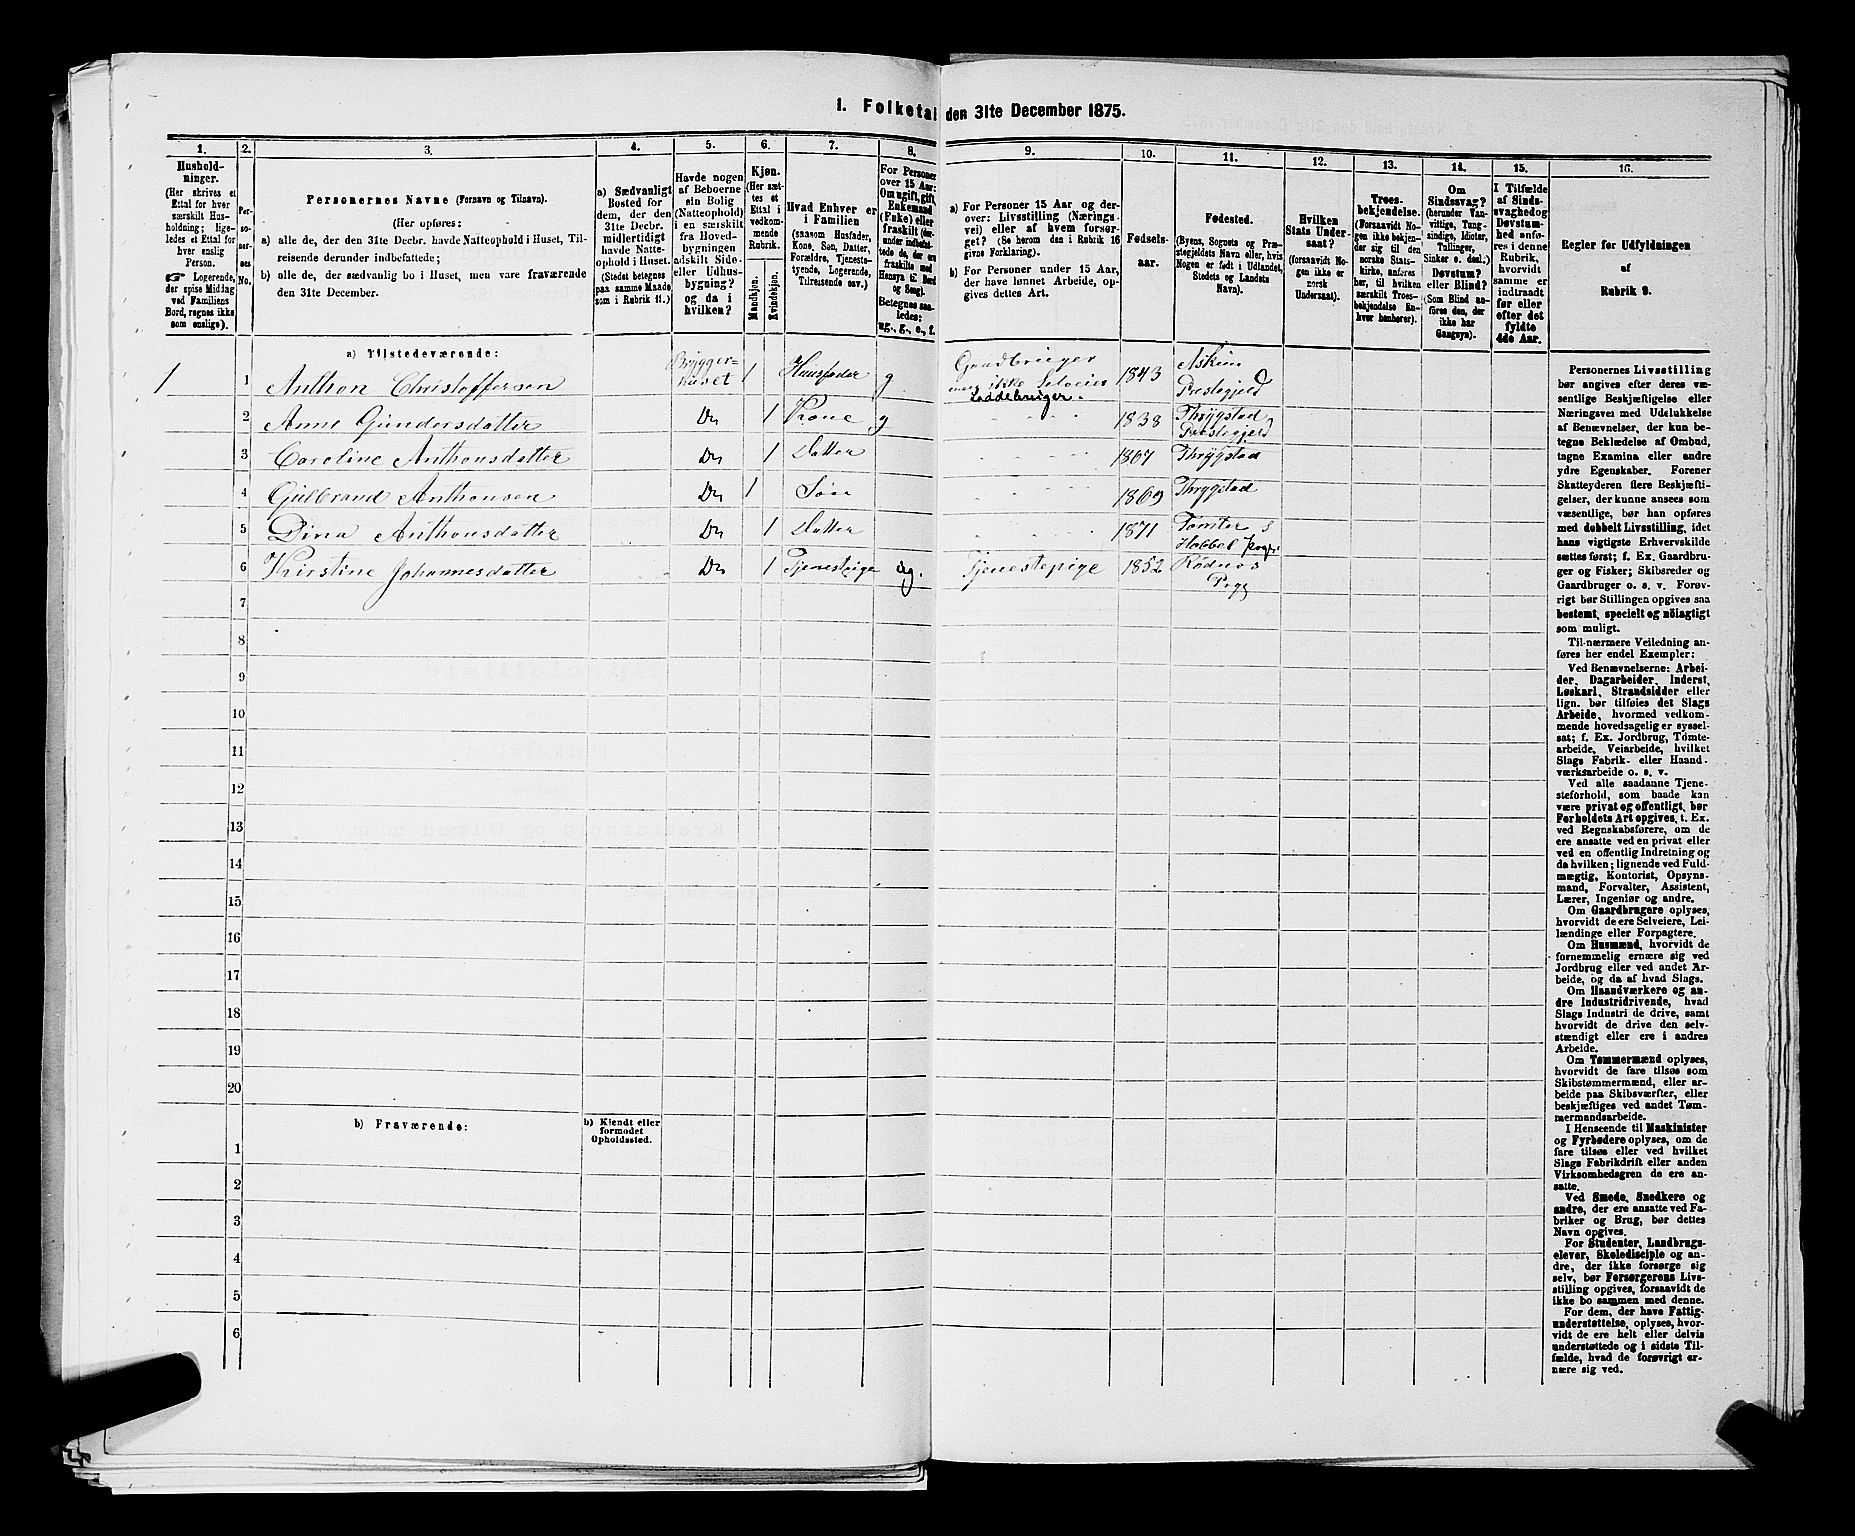 1. Folketal den 31te December 1875.
1.
Hushold-
ninger.
(Her skrives et
Ettal for hver
særskilt Hus-
holdning; lige-
ledes et Ettal for
hver enslig
Person.
☞ Logerende,
der spise Middag
ved Familiens
Bord, regnes ikke
som enslige).
2.
Per-
so-
ner-
nes
No.
3.
Personernes Navne (Fornavn og Tilnavn).
(Her opføres:
a) alle de, der den 31te Decbr. havde Natteophold i Huset, Til-
reisende derunder indbefattede;
b) alle de, der sædvanlig bo i Huset, men vare fraværende
den 31te December.
4.
a) Sædvanligt
Bosted for
dem, der den
31te Decbr.
midlertidigt
havde Natte-
ophold i Huset.
(Stedet betegnes
paa samme Maade
som i Rubrik 11.)
5.
Havde nogen
af Beboerne
sin Bolig
(Natteophold)
i en særskilt
fra Hoved-
bygningen
adskilt Side-
eller Udhus-
bygning?
og da i
hvilken?
6.
Kjøn.
(Her sæt-
tes et
Ettal i
vedkom-
mende
Rubrik.
Mandkjøn.
Kvindekjøn.
7.
Hvad Enhver er
i Familien
(saasom Husfader,
Kone, Søn, Datter,
Forældre, Tjeneste-
tyende, Logerende,
Tilreisende osv.)
8.
For Personer
over 15 Aar:
Om ugift, gift,
Enkemand
(Enke) eller
fraskilt (der-
under indbefat-
tede de, der ere
fraskilte med
Hensyn til Bord
og Seng).
Betegnes saa-
ledes:
ug., g., e., f.
9.
a) For Personer 15 Aar og der-
over: Livsstilling (Nærings-
vei) eller af hvem forsør-
get? (Se herom den i Rubrik 16
givne Forklaring).
b) For Personer under 15 Aar,
der have lønnet Arbeide, op-
gives dettes Art.
10.
Fødsels-
aar.
11.
Fødested.
(Byens, Sognets og Præ-
stegjeldets Navn eller, hvis
Nogen er født i Udlandet,
Stedets og Landets
Navn).
12.
Hvilken
Stats Under-
saat?
(forsaavidt No-
gen ikke er
norsk
Undersaat).
13.
Troes-
bekjendelse.
(Forsaavidt No-
gen ikke bekjen-
der sig til den
norske Stats-
kirke, anføres
her, til hvilken
særskilt Troes-
bekjendelse En-
hver henhører).
14.
Om
Sindssvag?
(herunder Van-
vittige, Tung-
sindige, Idioter,
Tullinger,
Sinker o. desl.)
Døvstum?
eller Blind?
(Som Blind an-
føres den, der
ikke har
Gangsyn).
15.
I Tilfælde
af Sinds-
svaghed og
Døvstum-
hed anfø-
res i denne
Rubrik,
hvorvidt
samme er
indtraadt
før eller
efter det
fyldte
4de Aar.
16.
Regler for Udfyldningen
af
Rubrik 9.
a) Tilstedeværende:
1 1 Anthon Christoffersen Brygger-
huset 1 Huusfader g Gaardbruger
men ikke Selveier
Loddebruger. 1843 Askim
Prestegjeld
2 Anne Gundersdatter Do 1 Kone g 1838 Thrygstad
Prestegjerd
3 Caroline Anthonsdatter Do 1 Datter 1867 Thrygstad
4 Gulbrand Anthonsen Do 1 Søn 1869 Thrygstad
5 Dina Anthonsdatter Do 1 Datter 1871 Tomter S
Hobbøl Prgj
6 Kirstine Johannesdatter Do 1 Tjenestpige ug. Tjenestepige 1852 Rødnæs
Prgj
7
8
9
10
11
12
13
14
15
16
17
18
19
20
b) Fraværende:
b) Kjendt eller
formodet
Opholdssted.
1
2
3
4
5
6
Personernes Livsstilling
bør angives efter deres væ-
sentlige Beskjæftigelse eller
Næringsvei med Udelukkelse
af Benævnelser, der kun be-
tegne Beklædelse af Ombud,
tagne Examina eller andre
ydre Egenskaber. Forener
Skatteyderen flere Beskjæfti-
gelser, der kunne ansees som
væsentlige, bør han opføres
med dobbelt Livsstilling, idet
hans vigtigste Erhvervskilde
sættes først; f. Ex. Gaardbru-
ger og Fisker; Skibsreder og
Gaardbruger o. s. v. Forøv-
rigt bør Stillingen opgives saa
bestemt, specielt og nöiagtigt
som muligt.
Til nærmere Veiledning an-
føres her endel Exempler:
Ved Benævnelserne: Arbei-
der, Dagarbeider, Inderst,
Løskarl, Strandsidder eller
lign. bør tilføies det Slags
Arbeide, hvormed vedkom-
mende hovedsagelig er syssel-
sat; f. Ex. Jordbrug, Tømte-
arbeide, Veiarbeide, hvilket
Slags Fabrik- eller Haand-
værksarbeide o. s. v.
Ved alle saadanne Tjene-
steforhold, som baade kan
være privat og offentligt, bør
Forholdets Art opgives, t. Ex.
ved Regnskabsførere, om de
ere ansatte ved en privat eller
ved en offentlig Indretning og
da hvilken; lignende ved Fuld-
mægtig, Kontorist, Opsyns-
mand, Forvalter, Assistent,
Lærer, Ingeniør og andre.
Om Gaardbrugere oplyses,
hvorvidt de ere Selveiere, Lei-
lændinge eller Forpagtere.
Om Husmænd, hvorvidt de
fornemmelig ernære sig ved
Jordbrug eller ved andet Ar-
beide, og da af hvad Slags.
Om Haandværkere og an-
dre Industridrivende, hvad
Slags Industri de drive, samt
hvorvidt de drive den selv-
stændigt eller ere i andres
Arbeide.
Om Tømmermænd oplyses,
hvorvidt de fare tilsøs som
Skibstømmermænd, eller ar-
beide paa Skibsværfter, eller
beskjæftiges ved andet Tøm-
mermandsarbeide.
I Henseende til Maskinister
og Fyrbødere oplyses, om de
fare tilsøs eller ved hvilket
Slags Fabrikdrift eller anden
Virksomhedsgren de ere an-
satte.
Ved Smede, Snedkere og
andre, der ere ansatte ved Fa-
briker og Brug, bør dettes
Navn opgives.
For Studenter, Landbrugs-
elever, Skoledisciple og an-
dre, der ikke forsørge sig
selv, bør Forsørgerens Livs-
stilling opgives, forsaavidt de
ikke bo sammen med denne.
For dem, der have Fattig-
understøttelse, oplyses, hvor-
vidt de ere helt eller delvis
understøttede og i sidste Til-
fælde, hvad de forøvrigt er-
nære sig ved.